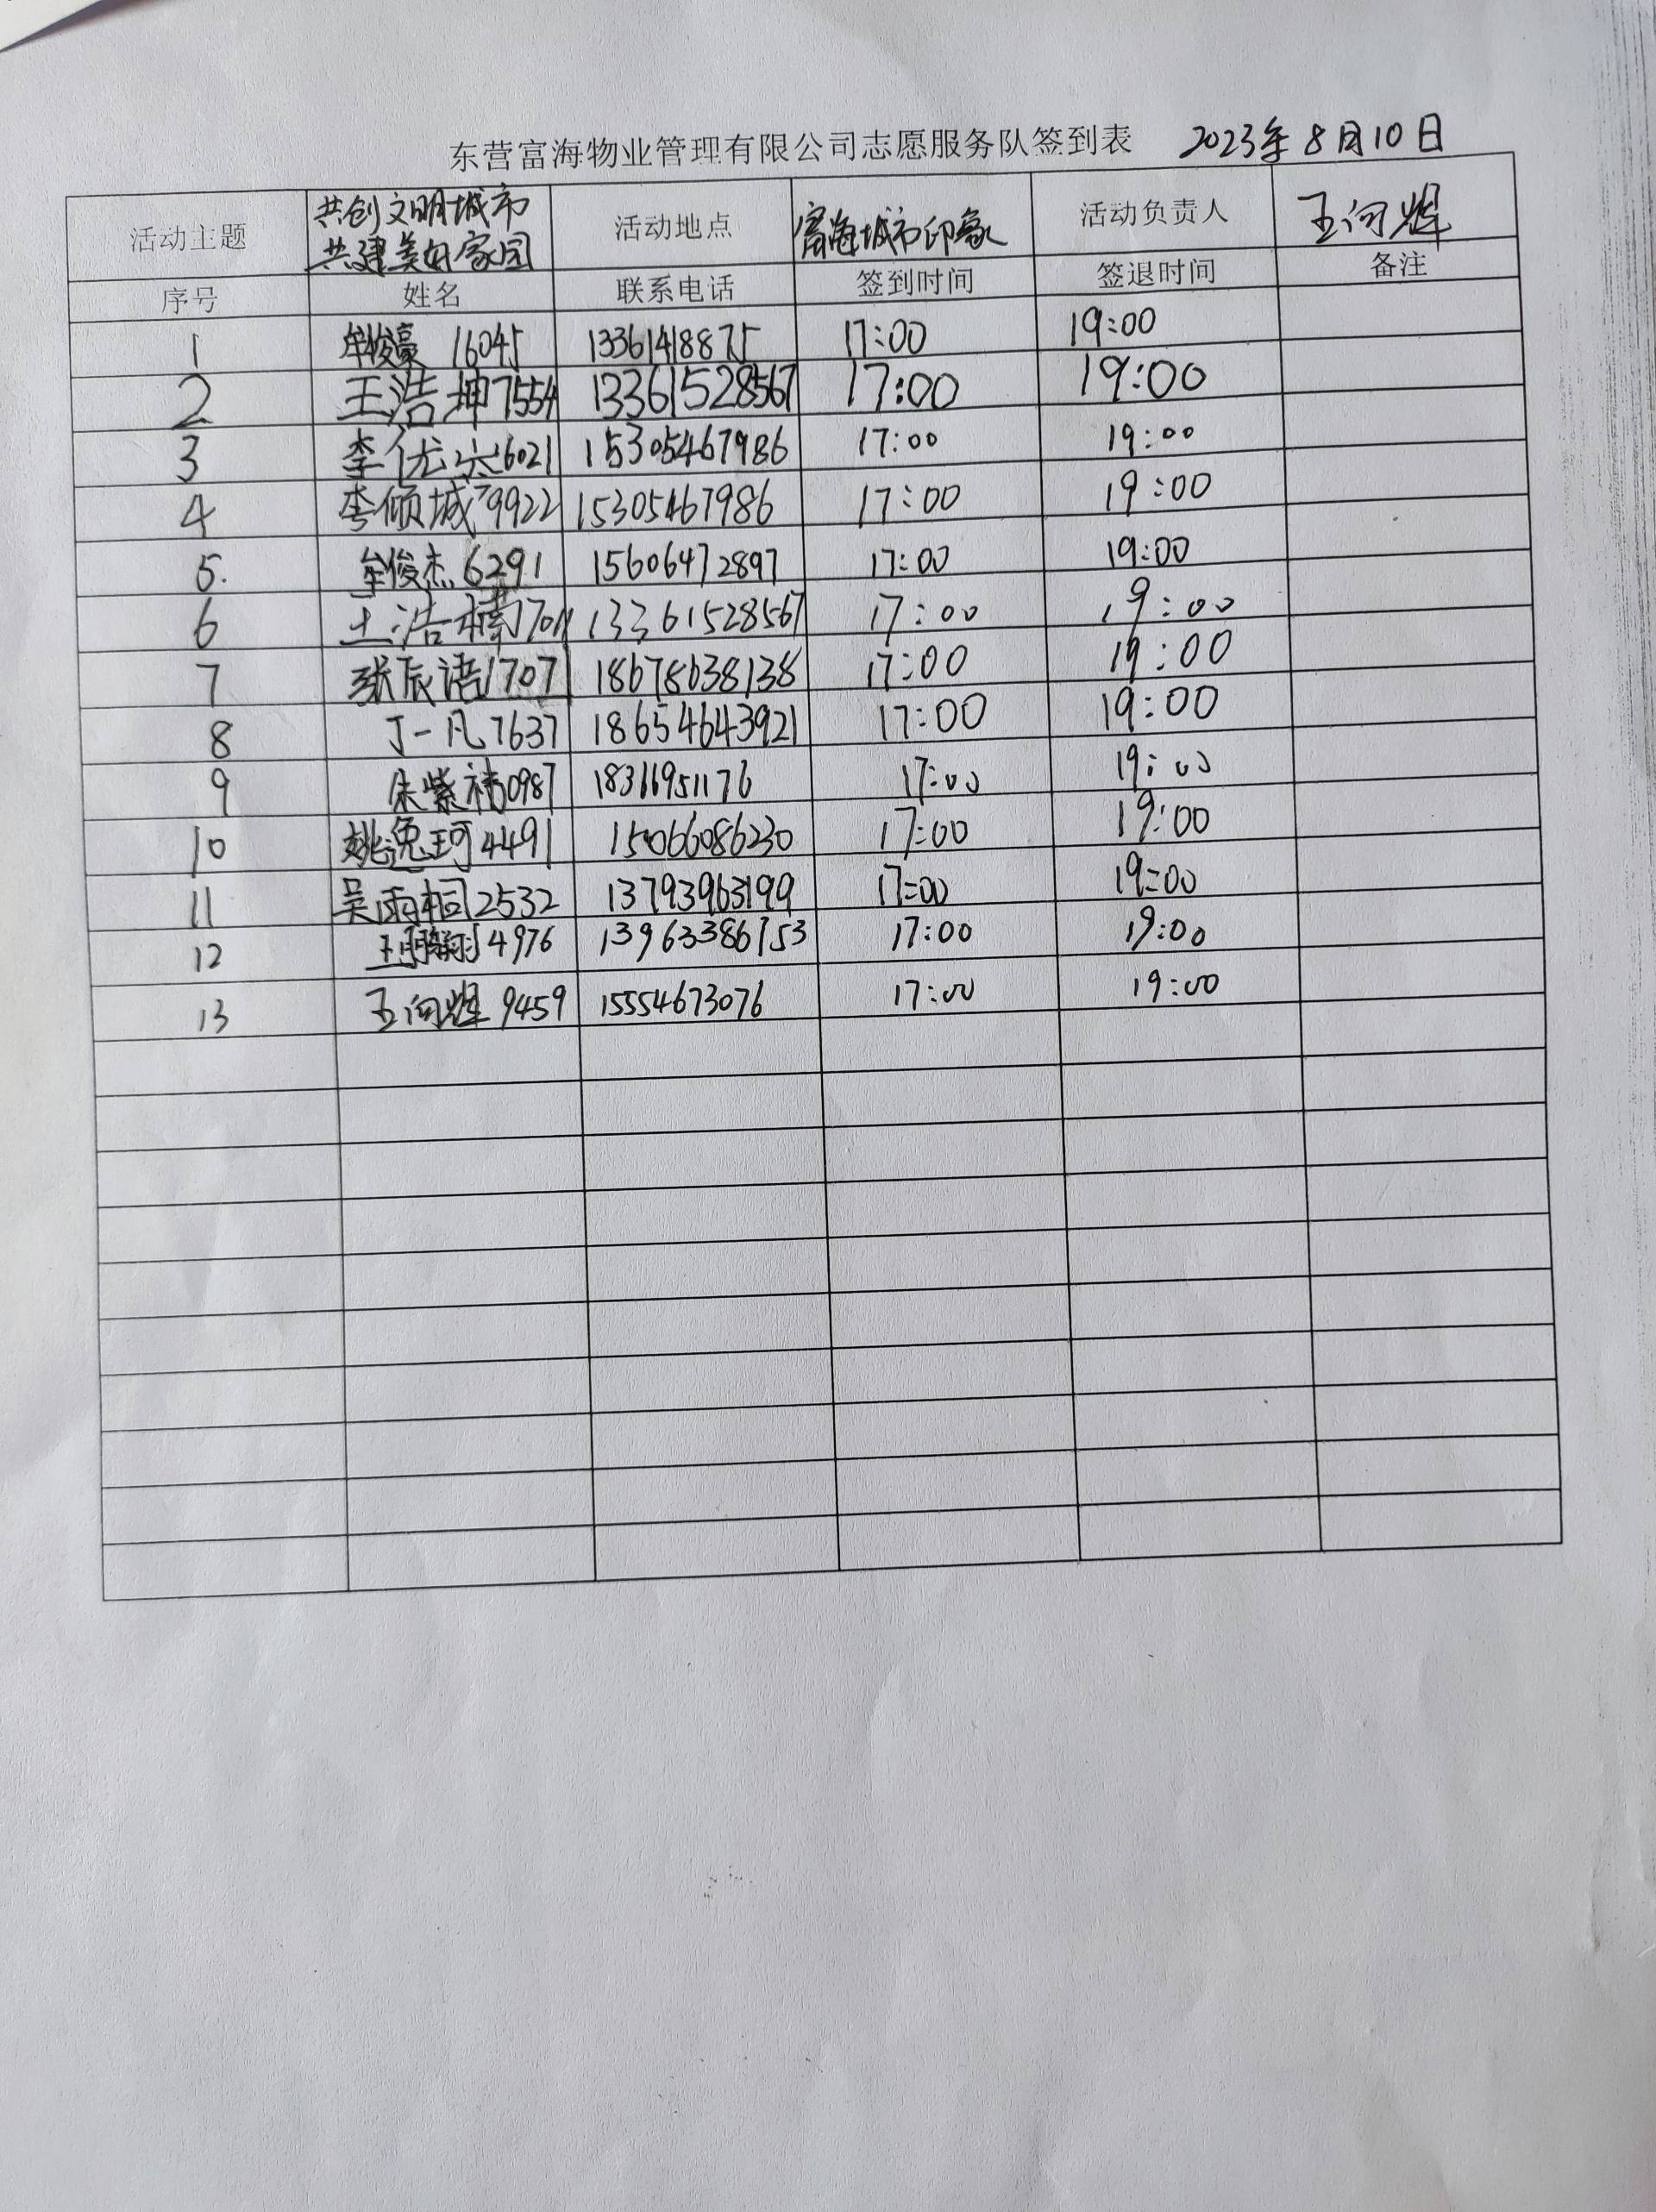 东营富海物业管理有限公司志愿服务队签到表 2023年8月10日
活动主题 共创文明城市 共建美好家园 活动地点 富海城市印象 活动负责人 王向辉
序号 姓名 联系电话 签到时间 签退时间 备注
1 牟俊豪 16045 13361418875 17:00 19:00
2 王浩坤 7554 13361528567 17:00 19:00
3 李优六 6021 15305467986 17:00 19:00
4 李倾城 9922 15305467986 17:00 19:00
5. 牟俊杰 6291 15606472897 17:00 19:00
6 王浩楠 13361528567 17:00 19:00
7 张辰语 1707 18678638138 17:00 19:00
8 丁一凡 7637 18654643921 17:00 19:00
9 朱紫祎 0987 18316951176 17:00 19:00
10 姚逸珂 4491 15066086230 17:00 19:00
11 吴雨桐 2532 13793963199 17:00 19:00
12 4976 13963386753 17:00 19:00
13 王向辉 9459 15554673076 17:00 19:00